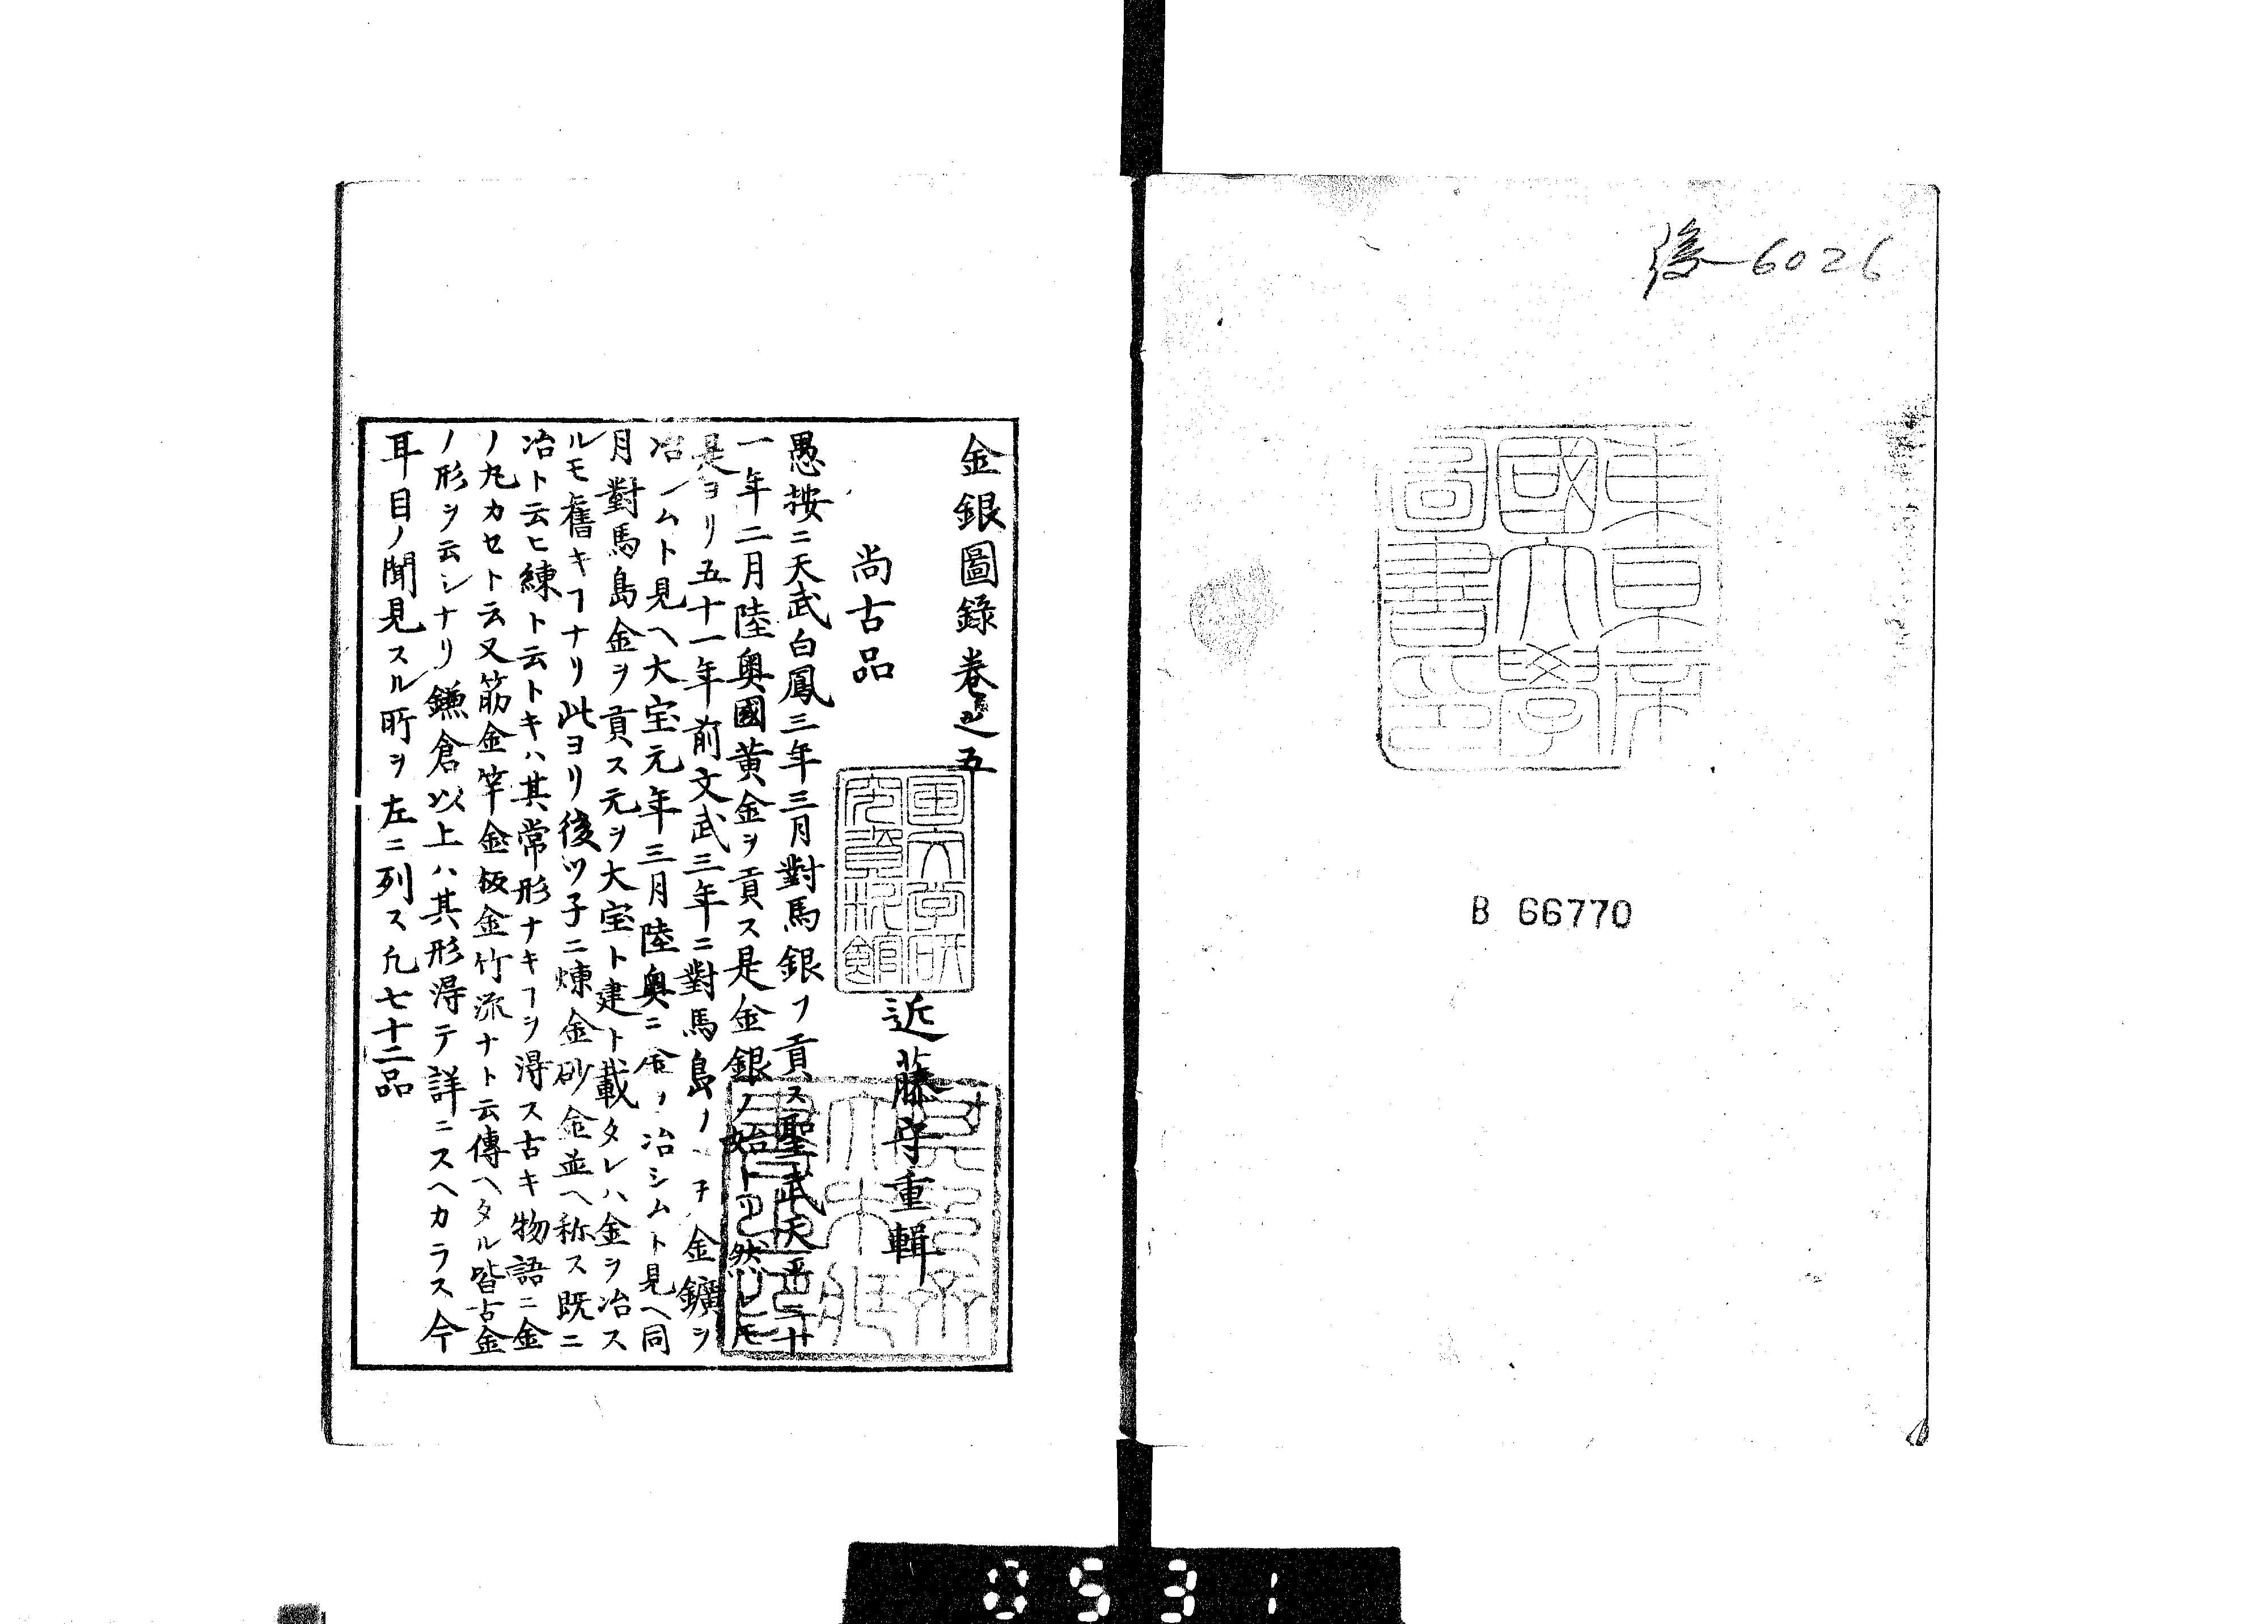 後-6026
東京帝
國大學
圖書印
B 66770
金銀圖錄卷之五
近藤守重輯
尚古品
愚按ニ天武白鳳三年三月對馬銀ヲ貢ス聖武天平二十
一年二月陸奧國黄金ヲ貢ス是金銀ノ始トス然レモ
是ヨリ五十一年前文武三年ニ對馬島ノ金鑛ヲ
冶ノムト見ヘ大宝元年三月陸奧ニ金ノ冶シムト見ヘ同
月對馬島金ヲ貢ス元ヲ大宝ト建ト載タレハ金ヲ冶ス
ルモ舊キヿナリ此ヨリ後ツ子ニ煉金砂金並ヘ称ス既ニ
冶ト云ヒ練ト云トキハ其常形ナキヿヲ淂ス古キ物語ニ金
ノ丸カセト云又筋金竿金板金竹流ナト云傳ヘタル皆古金
ノ形ヲ云シナリ鎌倉以上ハ其形淂テ詳ニスヘカラス今
耳目ノ聞見スル所ヲ左ニ列ス凡七十二品
国文学研
究資料館
0531